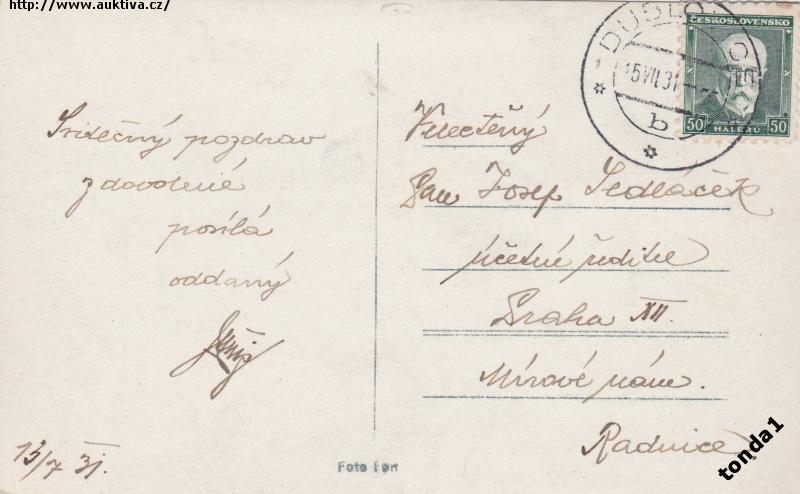 http://www.auktiva.cz/
Srdečný pozdrav
z dovolené
posílá
oddaný
13/7 31.
Foto Fon
Velectěný
Pan Josef Sedláček
účetní ředitel
Praha XII.
Mírové nám.
Radnice
ČESKOSLOVENSKO
50 HALÉŘŮ 50
15.VII.31
b
tonda1